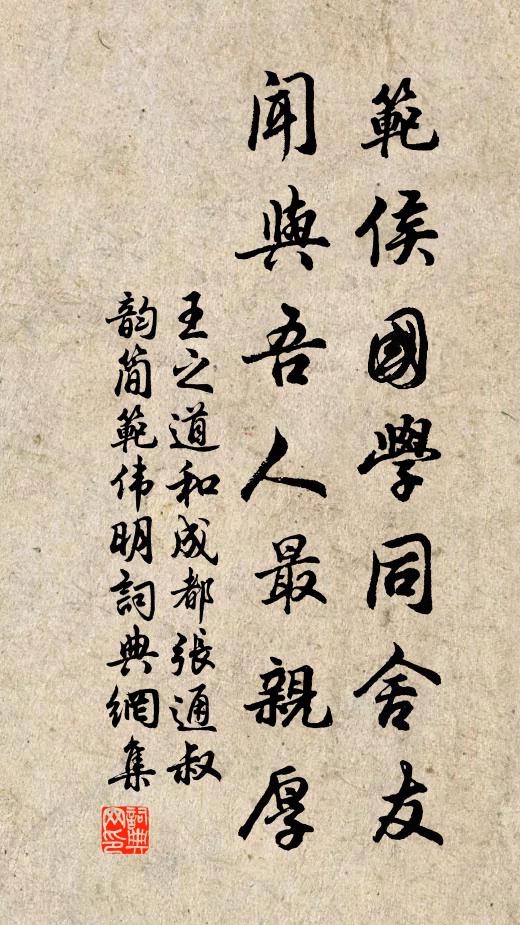 範侯國學同舍友
聞與吾人最親厚
王之道和成都張通叔
韵简範伟明詞典網集
詞典网印